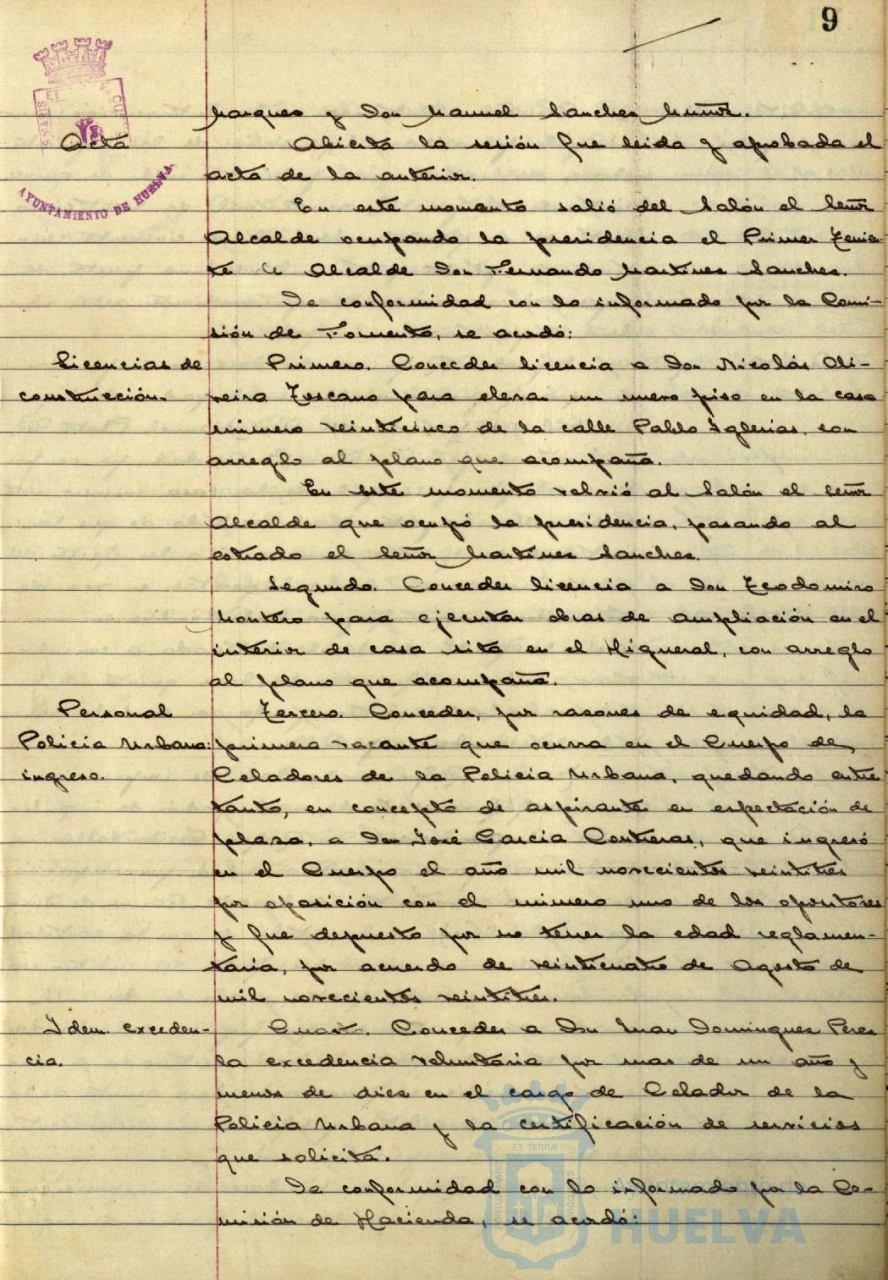 9
Marques y Don Manuel Sanchez Muñoz.
Acta
Abierta la sesión fue leida y aprobada el
acta de la anterior.
AYUNTAMIENTO DE HUELVA
En este momento salió del Salón el Señor
Alcalde ocupando la presidencia el Primer Tenien-
te de Alcalde Don Fernando Martinez Sanchez.
De conformidad con lo informado por la Comi-
sión de Fomento, se acordó:
Licencias de
construcción.
Primero. Conceder licencia a Don Nicolás Oli-
veira Toscano para elevar un nuevo piso en la casa
número veinticinco de la calle Pablo Iglesias, con
arreglo al plano que acompaña.
En este momento volvió al Salón el Señor
Alcalde que ocupó la presidencia, pasando al
estrado el Señor Martinez Sanchez.
Segundo. Conceder licencia a Don Teodomiro
Montero para ejecutar obras de ampliación en el
interior de casa sita en el Higueral, con arreglo
al plano que acompaña.
Personal
Policia Urbana:
ingreso.
Tercero. Conceder, por razones de equidad, la
primera vacante que ocurra en el Cuerpo de
Celadores de la Policia Urbana, quedando entre
tanto, en concepto de aspirante en espectación de
plaza, a Don José Garcia Contreras, que ingresó
en el Cuerpo el año mil novecientos veintitres
por oposición con el número uno de los opositores
y fue depuesto por no tener la edad reglamen-
taria, por acuerdo de veinticuatro de Agosto de
mil novecientos veintitres.
Idem. exceden-
cia.
Cuarto. Conceder a Don Juan Dominguez Perez
la excedencia voluntaria por mas de un año y
menos de diez en el cargo de Celador de la
Policia Urbana y la certificación de servicios
que solicita.
De conformidad con lo informado por la Co-
misión de Hacienda, se acordó:
ET TERRÆ
HUELVA